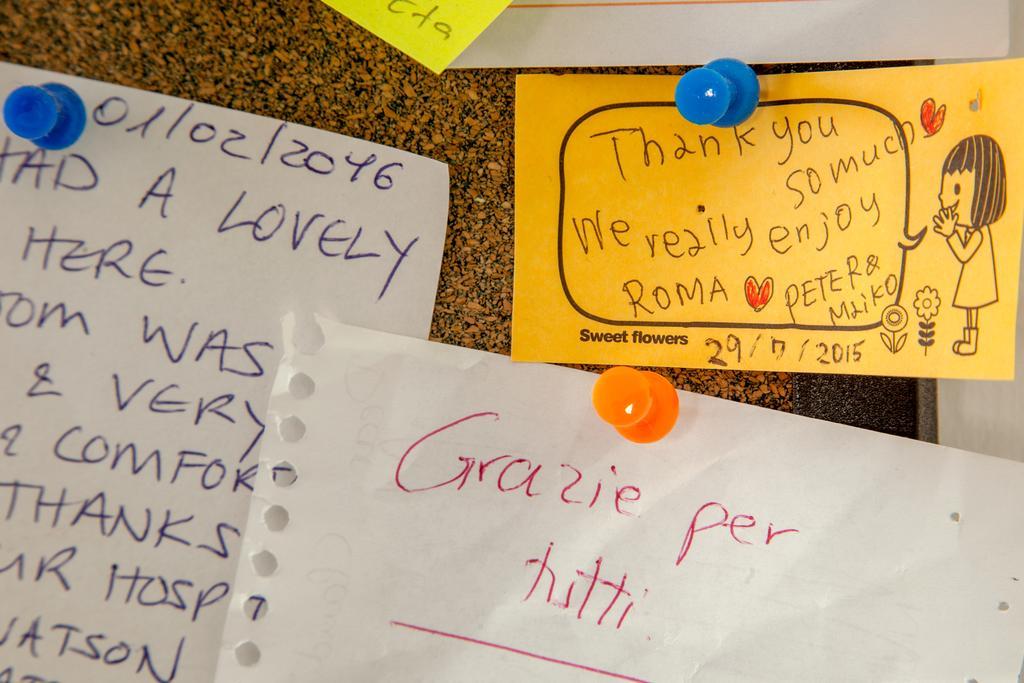 eta
01/02/2046
HAD A LOVELY
HERE.
WAS
& VERY
& COMFOR
THANKS
UR HOSP
WATSON
Thank you
so much
We really enjoy
ROMA PETER &
MAIKO
Sweet flowers
29/7/2015
Grazie per
tutti